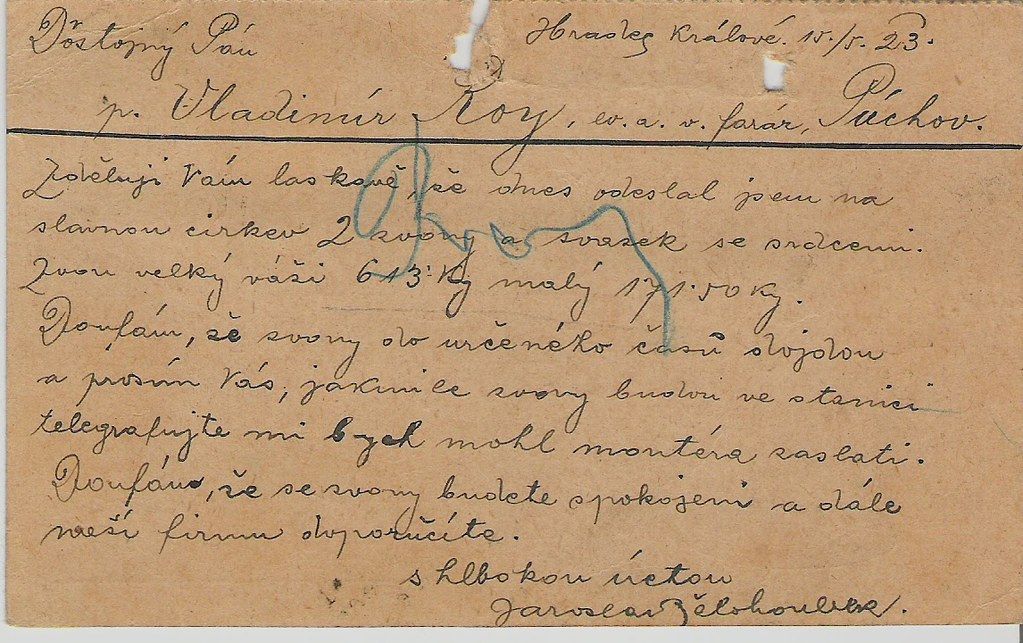 Dőstojný Pán
Hradec Králové. 15./5. 23.
p. Vladimír Roy, ev. a. v. farár, Púchov.
Zděluji Vám laskavě, že dnes odeslal jsem na
slavnou cirkev 2 zvony a svazek se srdcemi.
Zvon velký váži 613·Kg malý 171·50 Kg.
Doufám, že zvony do určeného časů dojdou
a prosím Vás, jakmile zvony budou ve stanici
telegrafujte mi bych mohl montéra zaslati.
Doufám, že se zvony budete spokojeni a dále
naší firmu doporučíte.
s hlbokou úctou
Jaroslav